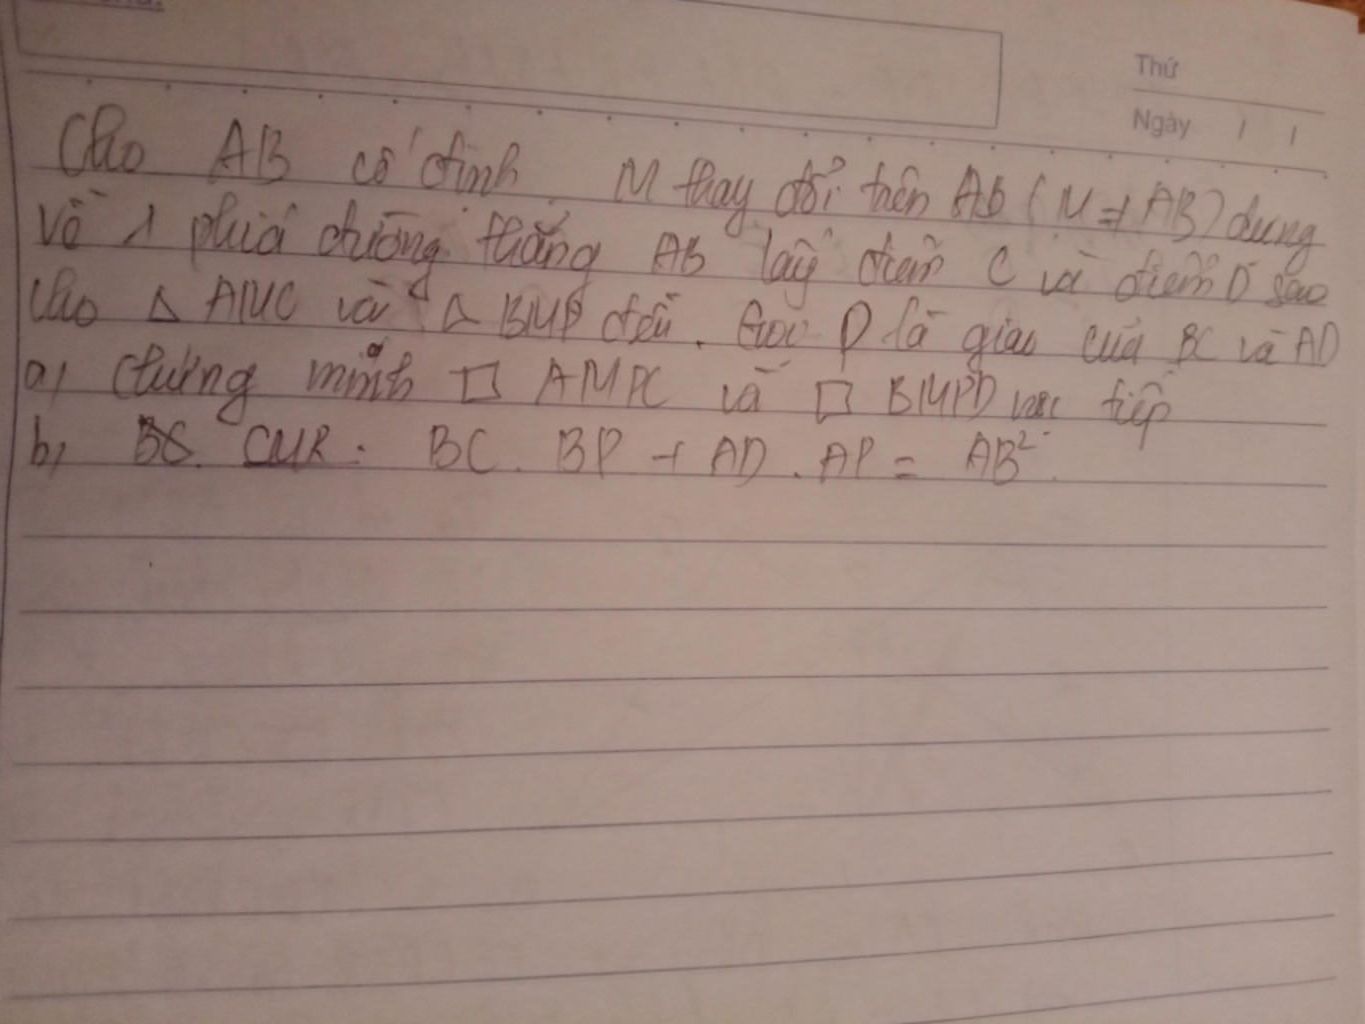 Thứ
Ngày / /
Cho AB cố định M thay đổi trên AB (M ≠ AB) dung
về 1 phía đường thẳng AB lấy điểm C và điểm D sao
cho Δ AMC và Δ BMD đều. Gọi P là giao của BC và AD
a, Chứng minh □ AMPC và □ BMPD tiếp
b, CMR: BC . BP + AD . AP = AB²